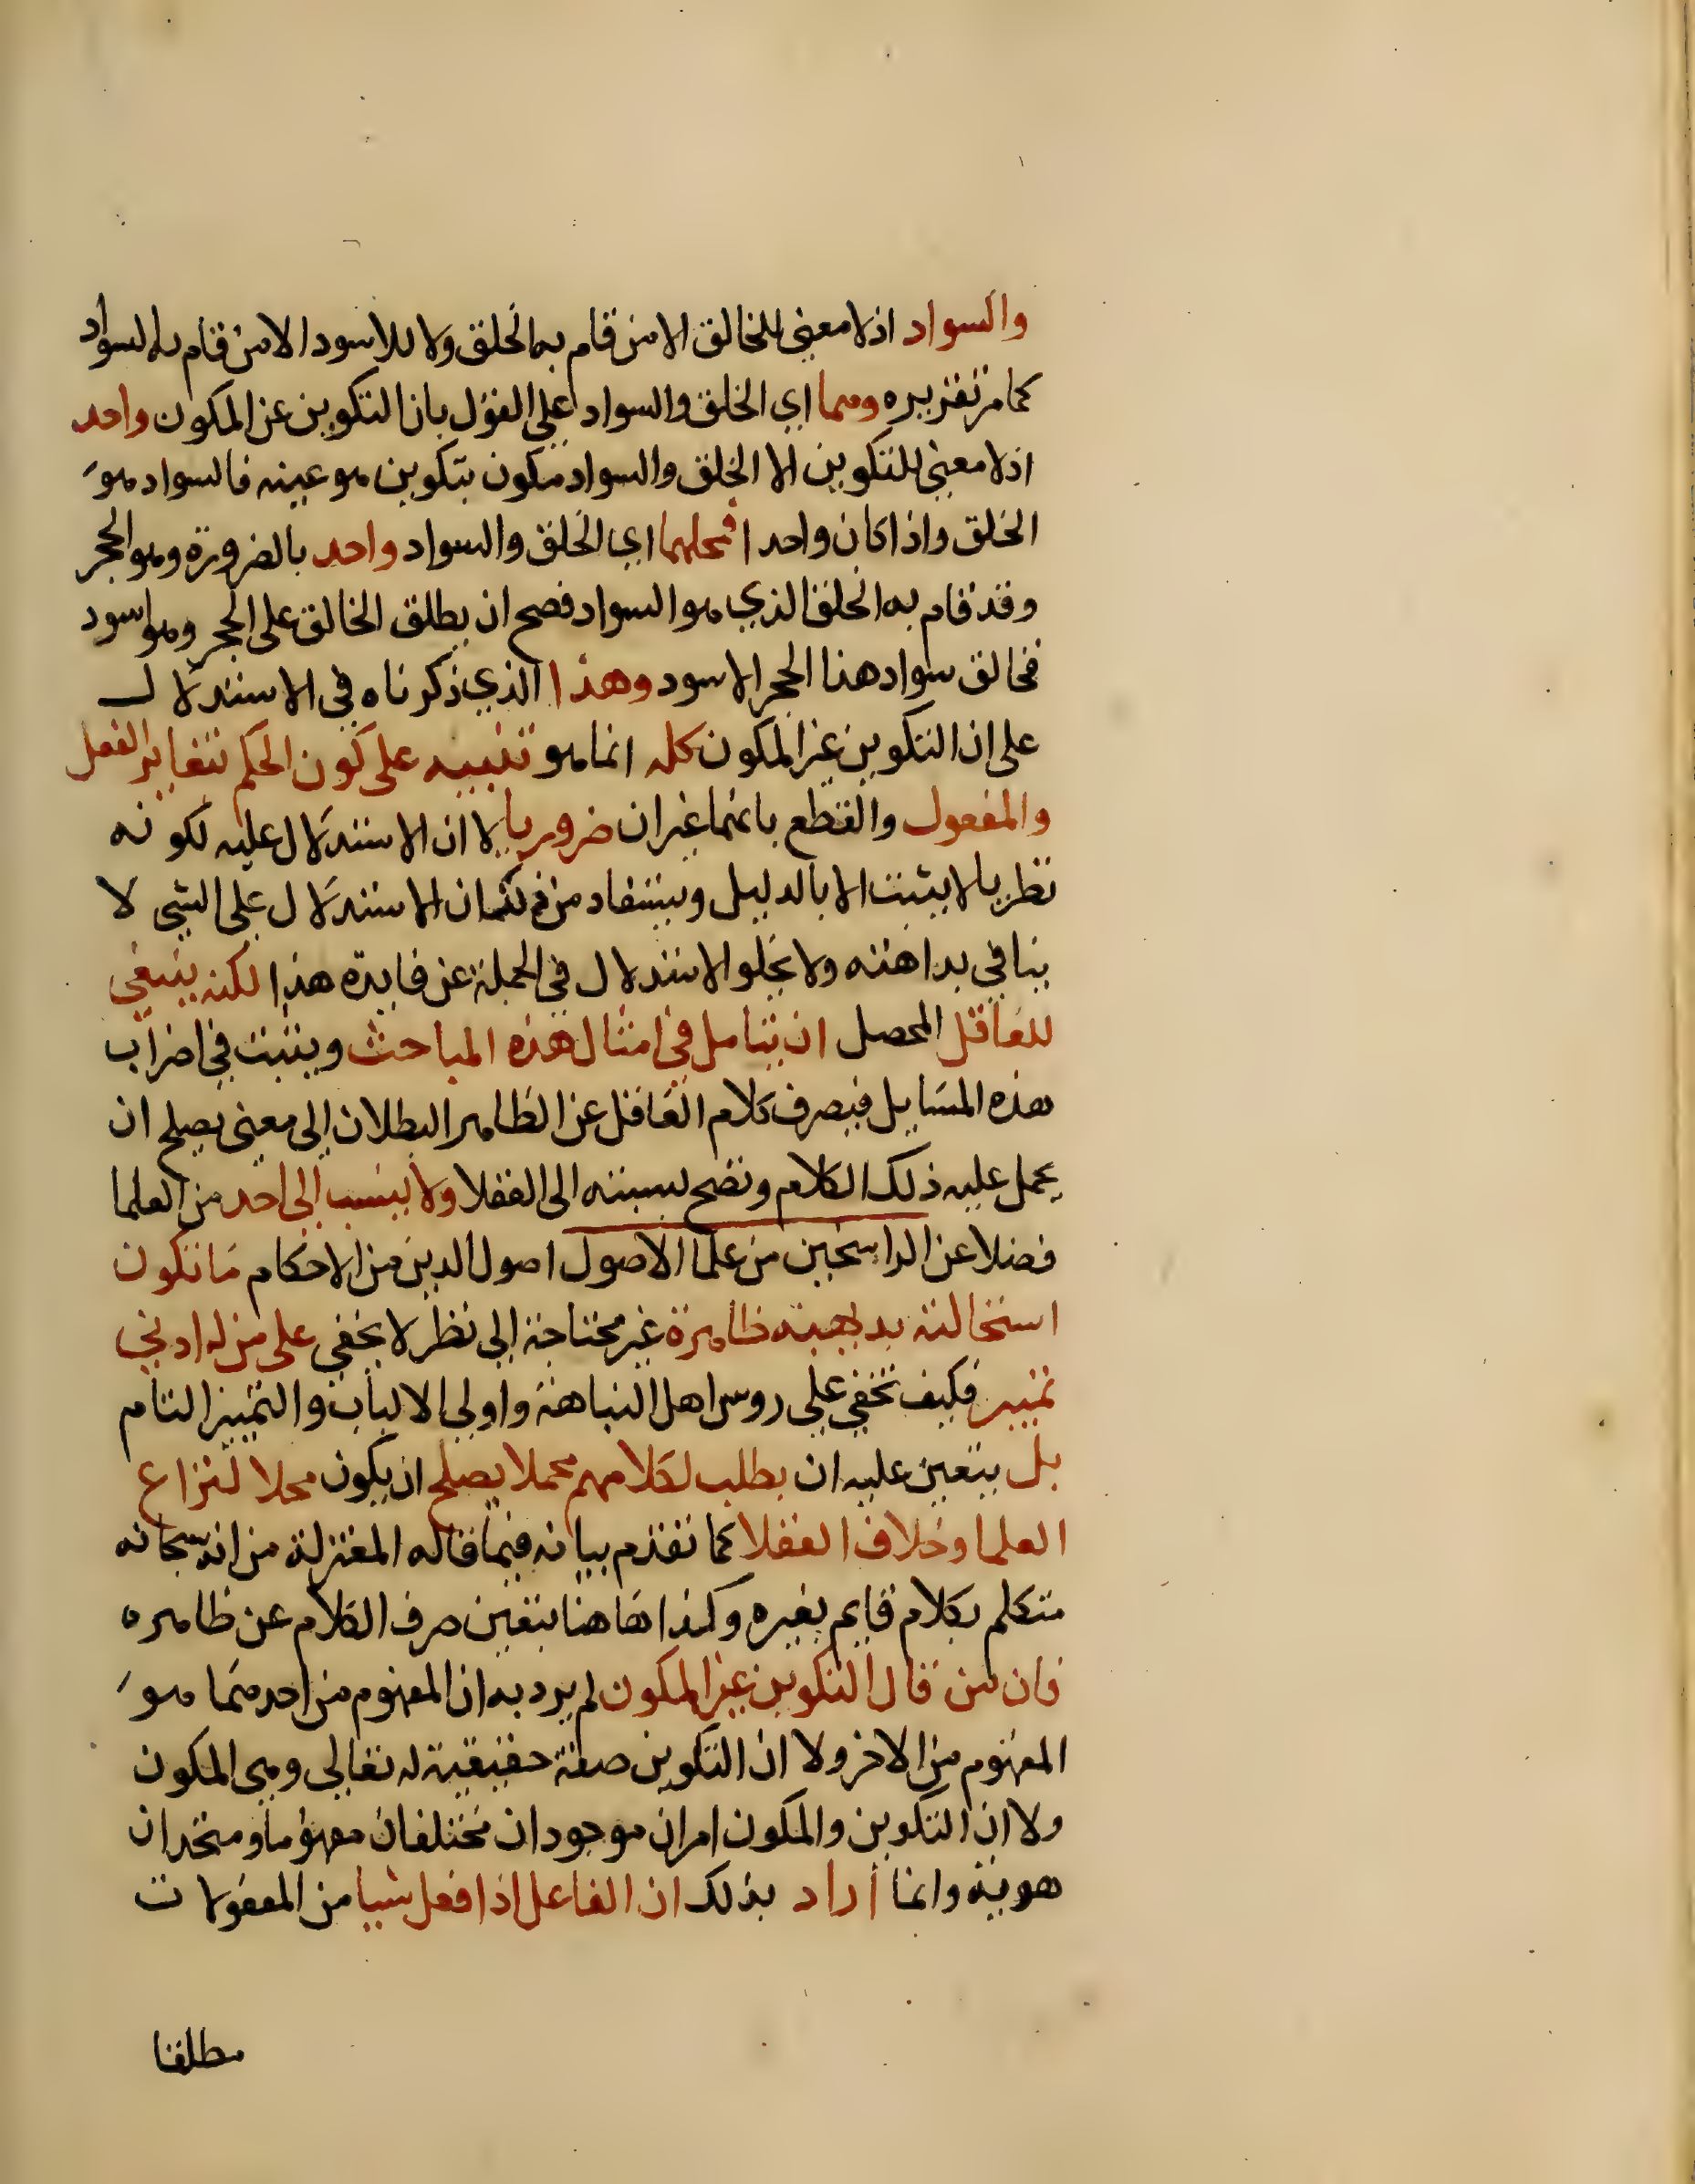 والسواد اذلا معنى للخالق الا من قام به الخلق ولا للاسود الا من قام به السواد
كما مر تقريره وهما اي الخلق والسواد على القول بان التكوين عين المكون واحد
اذلا معنى للتكوين الا الخلق والسواد مكون بتكوين هو عينه فالسواد هو
الخلق واذا كان واحدا فمحلهما اي الخلق والسواد واحد بالضرورة وهو الحجر
وقد قام به الخلق الذي هو السواد فصح ان يطلق الخالق على الحجر وهو اسود
فخالق سواد هذا الحجر الاسود وهذا الذي ذكرناه في الاستدلال
على ان التكوين غير المكون كله انما هو تنبيه على كون الحكم بتغاير الفعل
والمفعول والقطع بانهما غيران ضروريا لا ان الاستدلال عليه لكونه
نظريا لا يثبت الا بالدليل ويستفاد من ان الاستدلال على الشي لا
ينافي بداهته ولا يخلو الاستدلال في الجملة عن فايدة هذا لكنه ينبغي
للعاقل المحصل ان يتامل في امثال هذه المباحث ويتثبت في اضراب
هذه المسايل فيصرف كلام العاقل عن الظاهر البطلان الى معنى يصلح ان
يحمل عليه ذلك الكلام وتصح نسبته الى العقلا ولا ينسب الى احد من العلما
فضلا عن الراسخين من علما الاصول اصول الدين من الاحكام ما تكون
استحالته بديهية ظاهرة غير محتاجة الى نظر لا يخفى على من له ادنى
تمييز فكيف تخفى على روس اهل النباهة واولي الالباب والتمييز التام
بل يتعين عليه ان يطلب لكلامهم محملا يصلح ان يكون محلا لنزاع
العلما وخلاف العقلا كما تقدم بيانه فيما قاله المعتزلة من انه سبحانه
متكلم بكلام قايم بغيره وكذا هاهنا يتعين صرف الكلام عن ظاهره
فان من قال التكوين عين المكون لم يرد به ان المفهوم من احدهما هو
المفهوم من الاخر ولا ان التكوين صفة حقيقية له تعالى وهي المكون
ولا ان التكوين والمكون امران موجودان مختلفان مفهوما ومتحدان
هوية وانما اراد بذلك ان الفاعل اذا فعل شيا من المعقولات
مطلقا